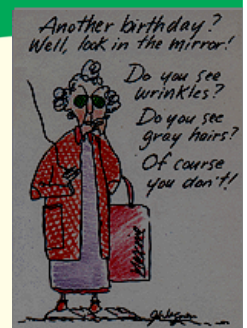 Another birthday?
Well, look in the mirror!
Do you see
wrinkles?
Do you see
gray hairs?
Of course
you don't!